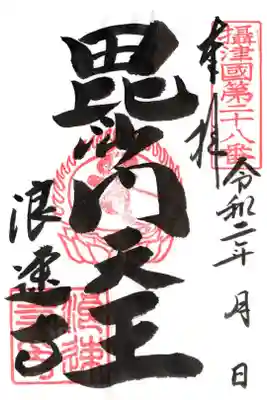 攝津國第二十八番
奉拝
令和二年 月 日
毘沙門天王
浪速寺
浪速
寺